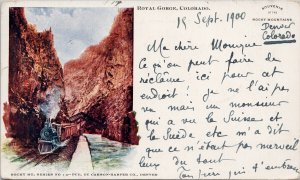 ROYAL GORGE, COLORADO.
SOUVENIR
OF THE
ROCKY MOUNTAINS
Denver
Colorado
19 Sept. 1900
Ma chère Monique
Ce qu'on peut faire de
réclame ici pour cet
endroit! Je ne l'ai pas
vu mais un monsieur
qui a vu la Suisse et
la Suède etc m'a dit
que ce n'était pas merveil
leux du tout
Ton père qui t'embrasse
ROCKY MT. SERIES NO PUB. BY CARSON-HARPER CO., DENVER